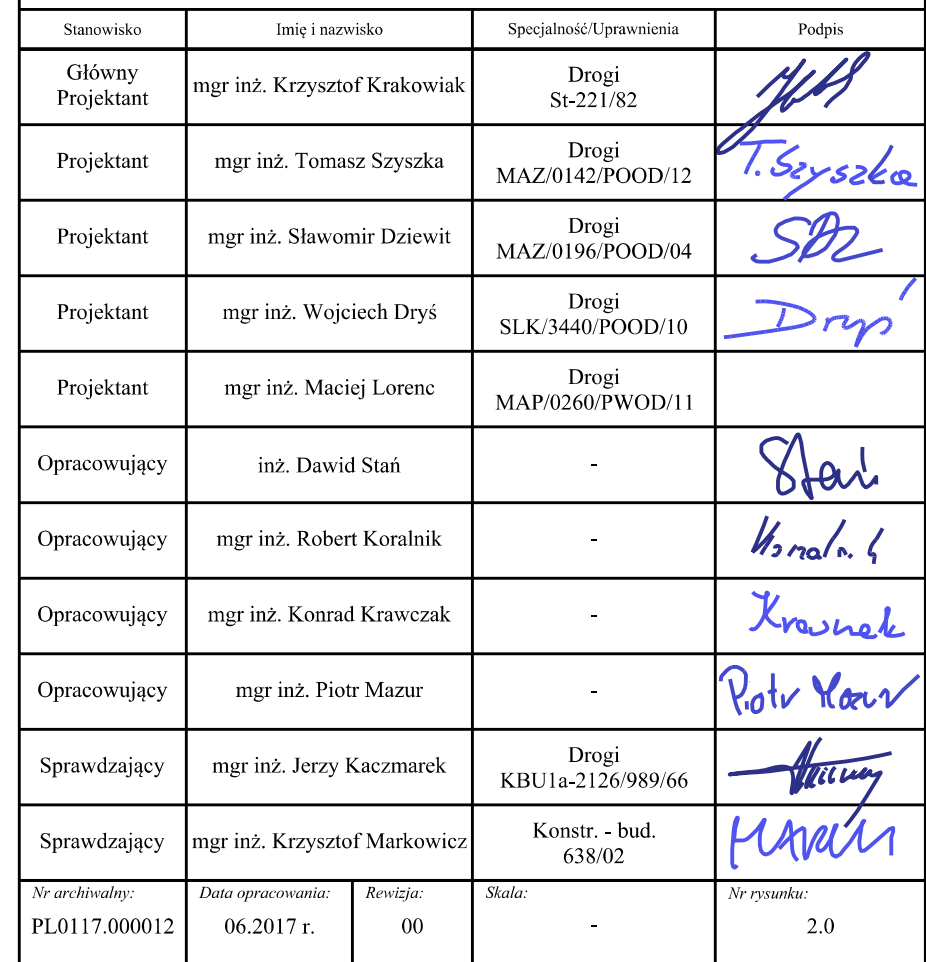 Stanowisko Imię i nazwisko Specjalność/Uprawnienia Podpis
Główny Projektant mgr inż. Krzysztof Krakowiak Drogi St-221/82
Projektant mgr inż. Tomasz Szyszka Drogi MAZ/0142/POOD/12 T. Szyszka
Projektant mgr inż. Sławomir Dziewit Drogi MAZ/0196/POOD/04
Projektant mgr inż. Wojciech Dryś Drogi SLK/3440/POOD/10 Dryś
Projektant mgr inż. Maciej Lorenc Drogi MAP/0260/PWOD/11
Opracowujący inż. Dawid Stań - Stań
Opracowujący mgr inż. Robert Koralnik -
Opracowujący mgr inż. Konrad Krawczak -
Opracowujący mgr inż. Piotr Mazur - Piotr Mazur
Sprawdzający mgr inż. Jerzy Kaczmarek Drogi KBU1a-2126/989/66
Sprawdzający mgr inż. Krzysztof Markowicz Konstr. - bud. 638/02
Nr archiwalny: Data opracowania: Rewizja: Skala: Nr rysunku:
PL0117.000012 06.2017 r. 00 - 2.0